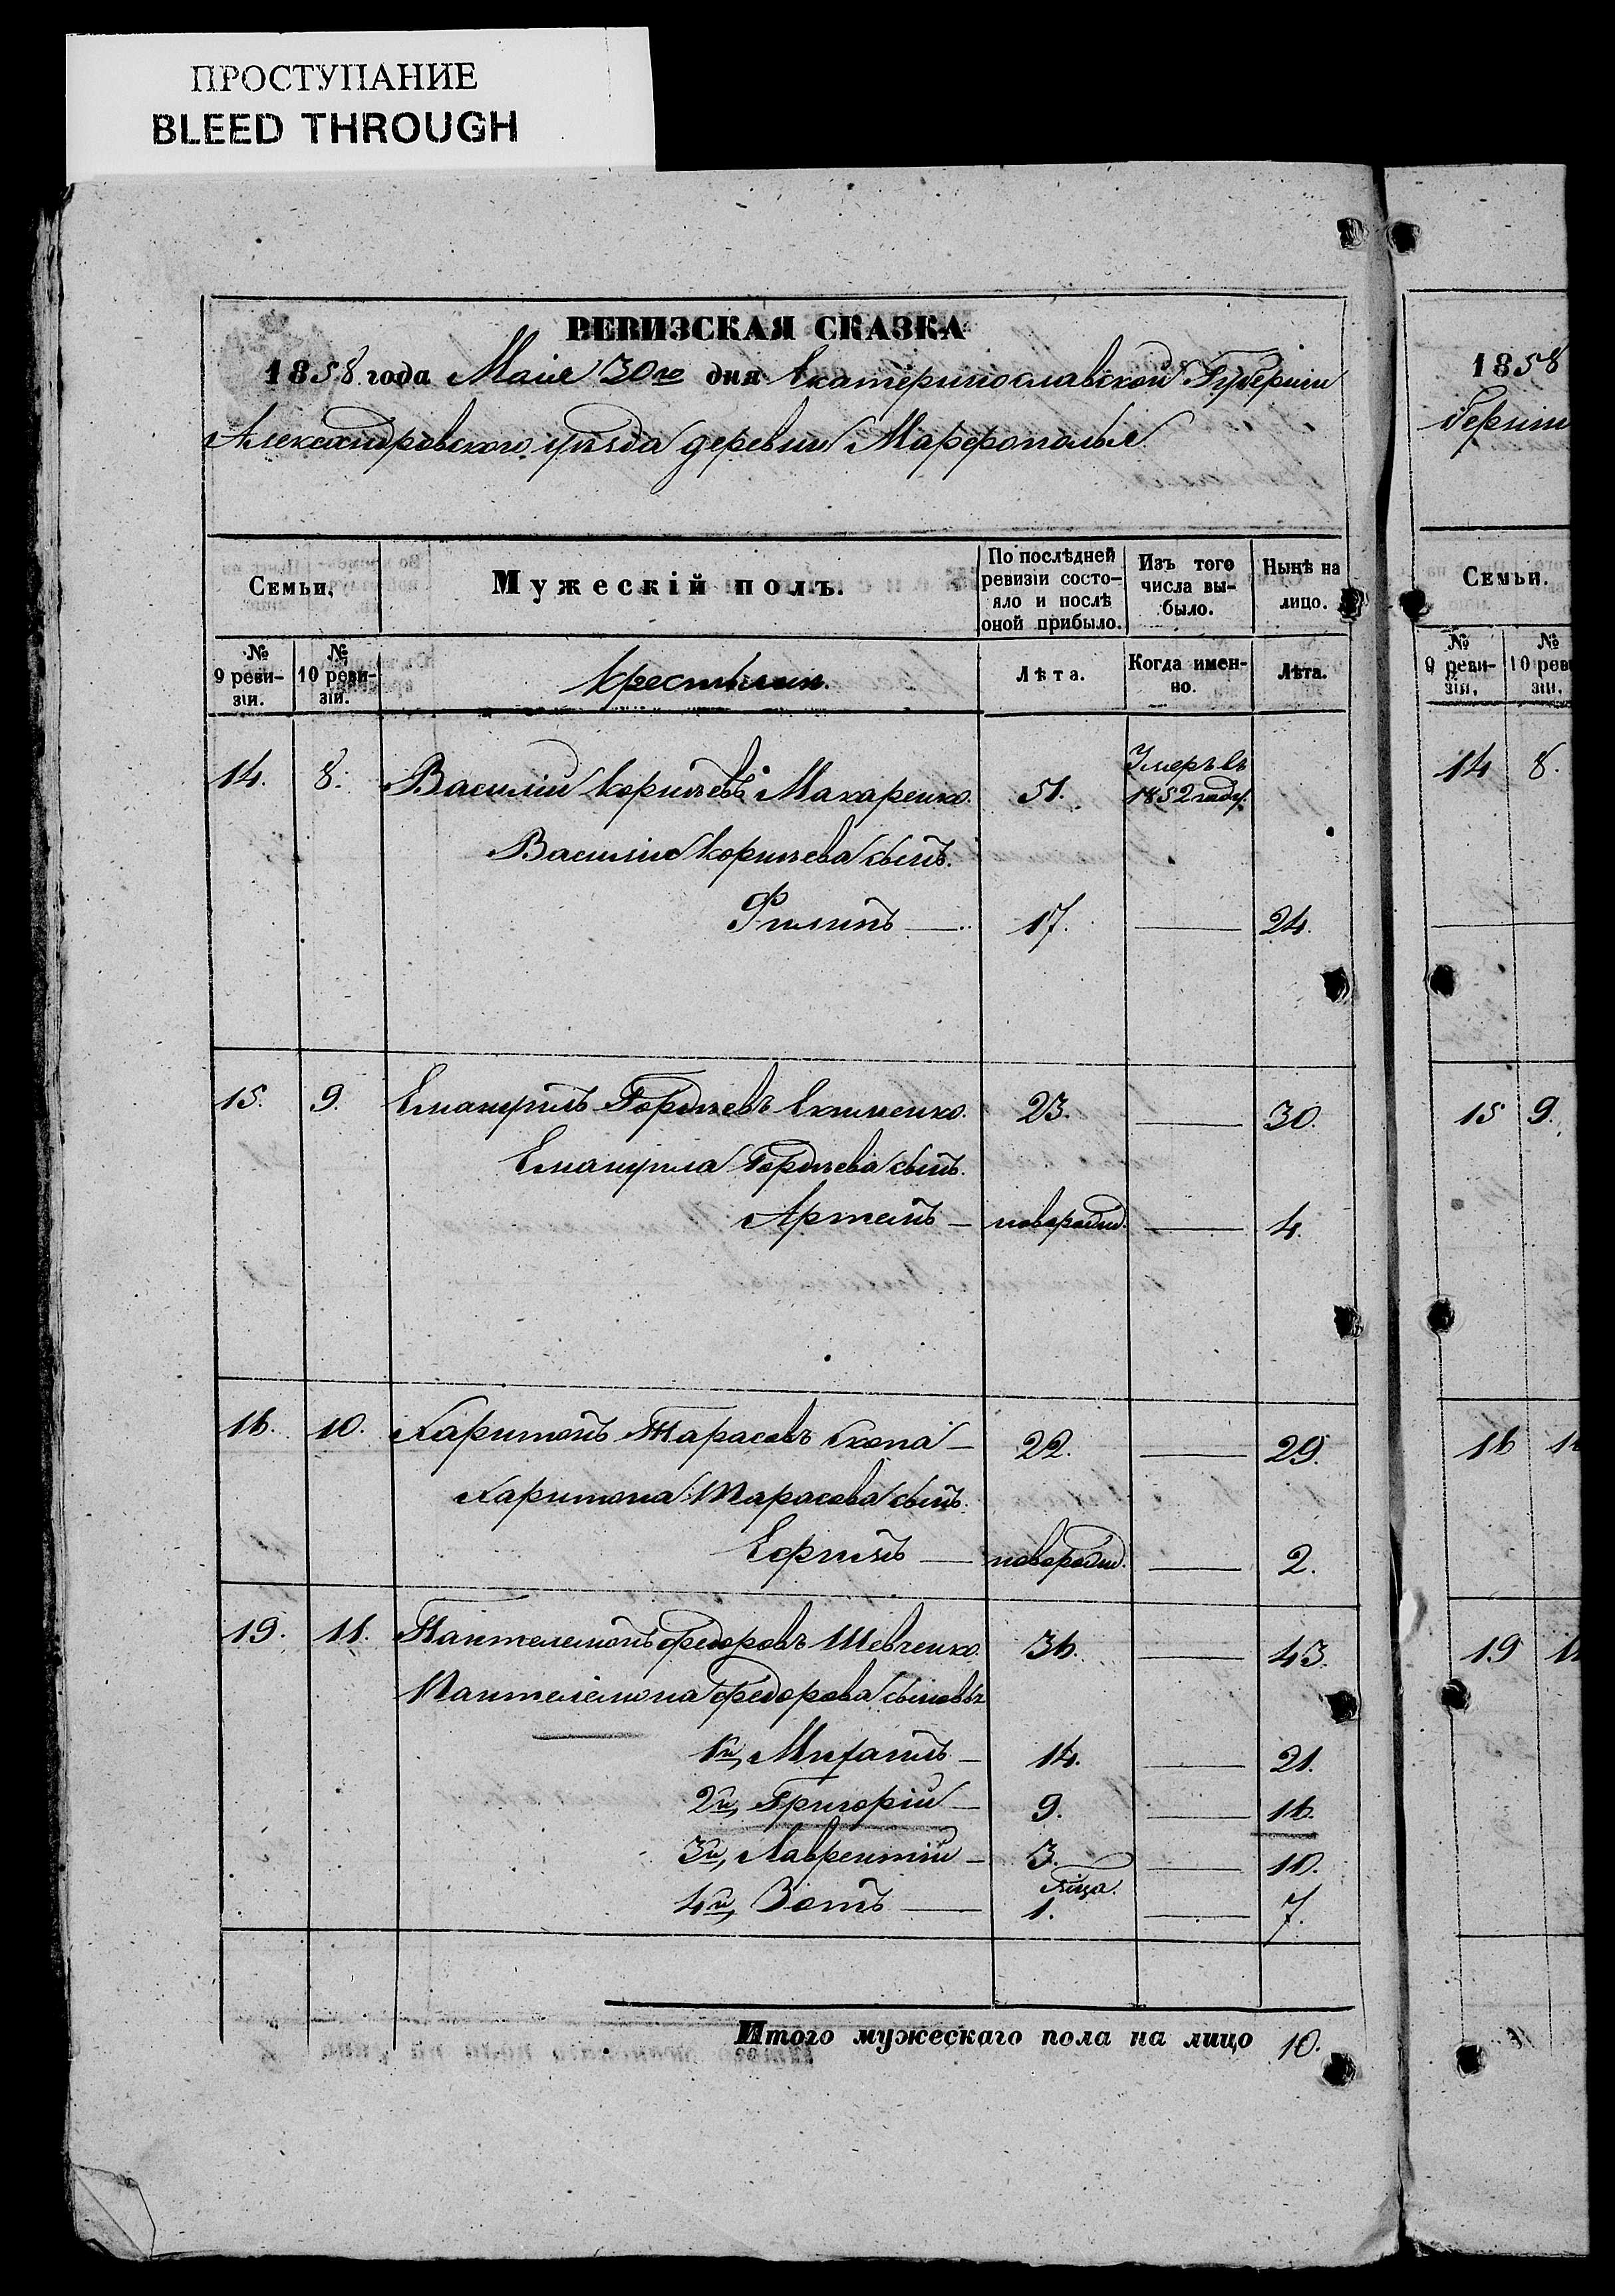 ПРОСТУПАНИЕ
BLEED THROUGH
РЕВИЗСКАЯ СКАЗКА
1858 года Маiя 30го дня Екатеринославской Губернiи
Александровского уѣзда деревни Марфополья
Семьи.
Мужескiй полъ.
По послѣдней ревизiи состо-
яло и послѣ
оной прибыло.
Изъ того
числа вы-
было.
Нынѣ на
лицо.
№
9 реви-
зiи.
№
10 реви-
зiи.
Крестьяне.
Лѣта.
Когда имен-
но.
Лѣта.
14. 8. Василiй Корнѣевъ Макаренко. 51. Умеръ въ 1852 году.
Василiя Корнѣева сынъ.
Филипъ — 17. — 24.
15. 9. Емануилъ Гордѣевъ Екименко. 23. — 30.
Емануила Гордѣева сынъ.
Артемъ — новорожд. — 4.
16. 10. Харитонъ Тарасовъ Скопа — 22. — 29.
Харитона Тарасова сынъ.
Ефимъ — новорожд. — 2.
19. 11. Пантелемонъ Федоровъ Шевченко. 36. — 43.
Пантелемона Федорова сыновья
1й, Михаилъ — 14. — 21.
2й, Григорiй — 9. — 16.
3й, Лаврентiй — 3. — 10.
4й, Зотъ — 1. — 7.
Итого мужескаго пола на лицо 10.
1858
бернiи
Семьи.
№
9 реви-
зiи.
№
10 реви
зiи.
14 8.
15 9.
16 1
19 1